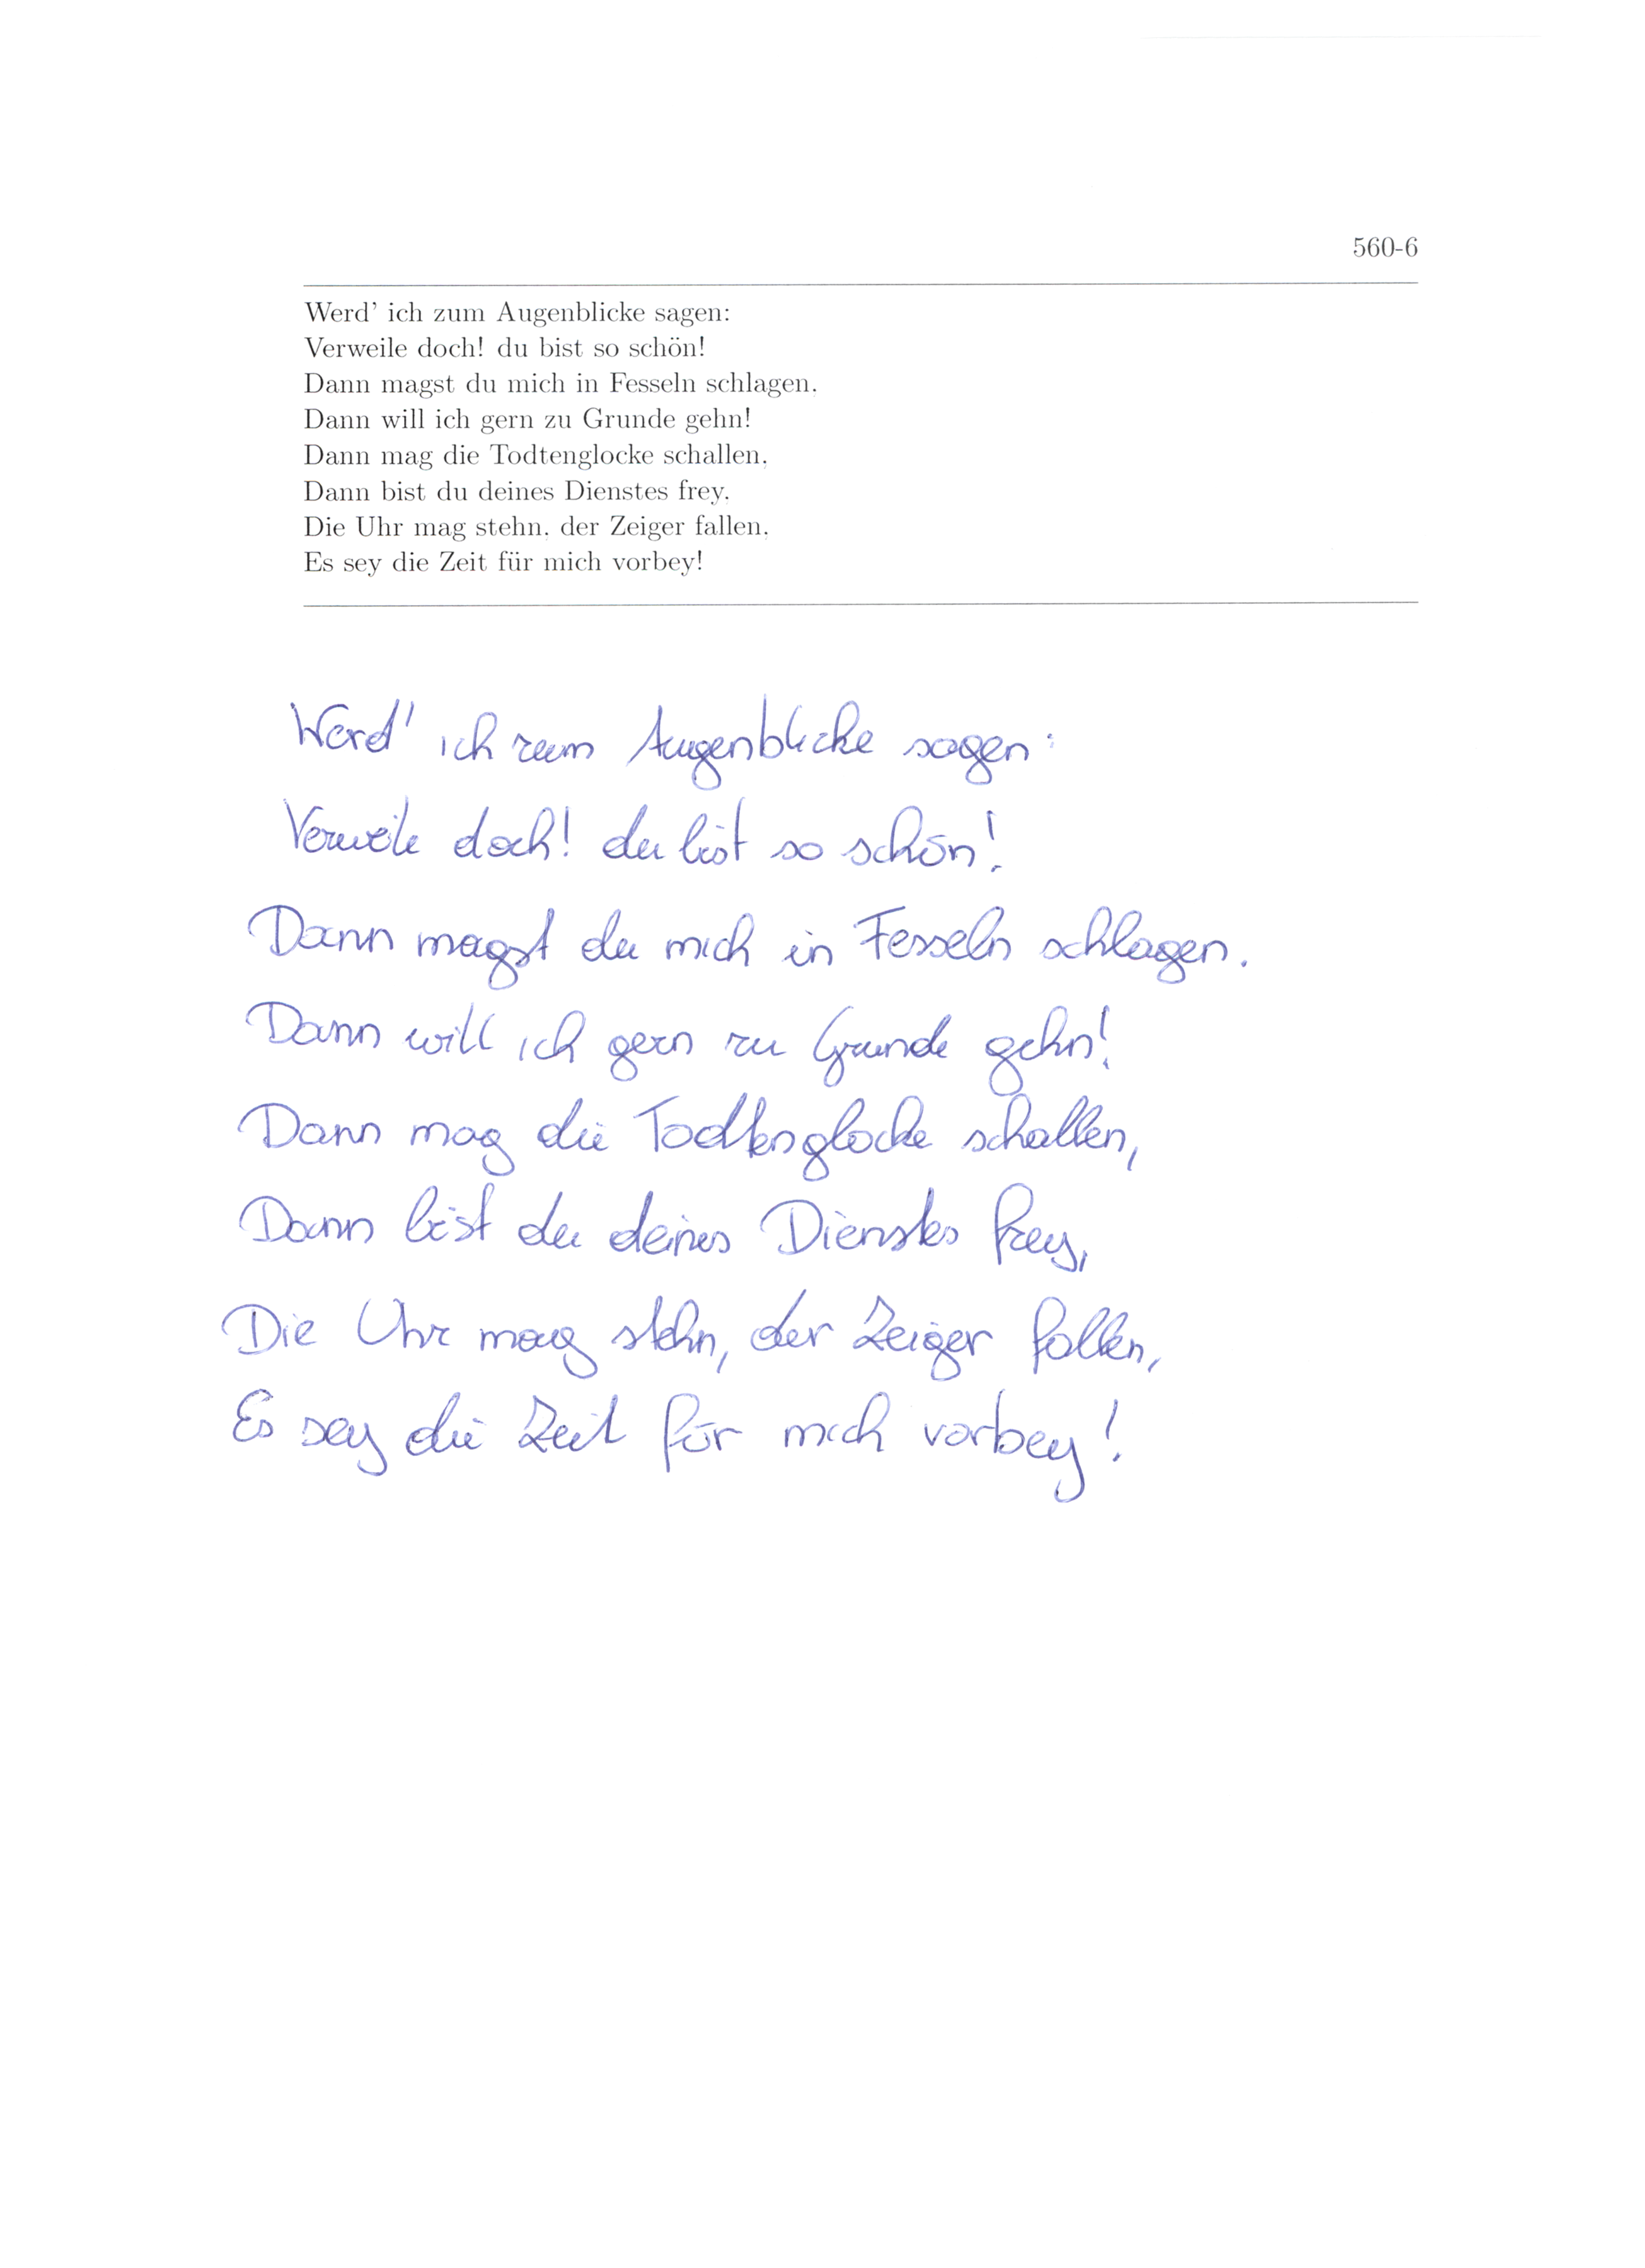 560-6
Werd' ich zum Augenblicke sagen:
Verweile doch! du bist so schön!
Dann magst du mich in Fesseln schlagen,
Dann will ich gern zu Grunde gehn!
Dann mag die Todtenglocke schallen,
Dann bist du deines Dienstes frey,
Die Uhr mag stehn, der Zeiger fallen,
Es sey die Zeit für mich vorbey!
Werd' ich zum Augenblicke sagen:
Verweile doch! du bist so schön!
Dann magst du mich in Fesseln schlagen.
Dann will ich gern zu Grunde gehn!
Dann mag die Todtenglocke schallen,
Dann bist du deines Dienstes frey,
Die Uhr mag stehn, der Zeiger fallen,
Es sey die Zeit für mich vorbey!